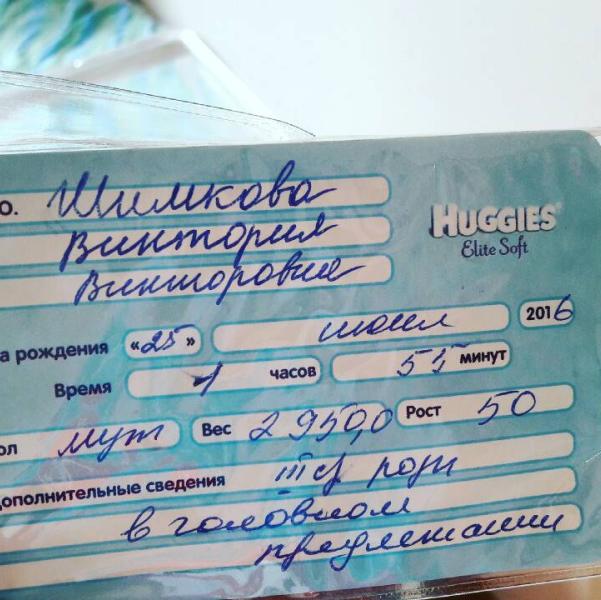 О. Шимкова
Виктория
Викторовна
HUGGIES
Elite Soft
а рождения «25» 2016
Время 1 часов 55 минут
ол муж Вес 2950,0 Рост 50
дополнительные сведения роды
в головном
предлежании